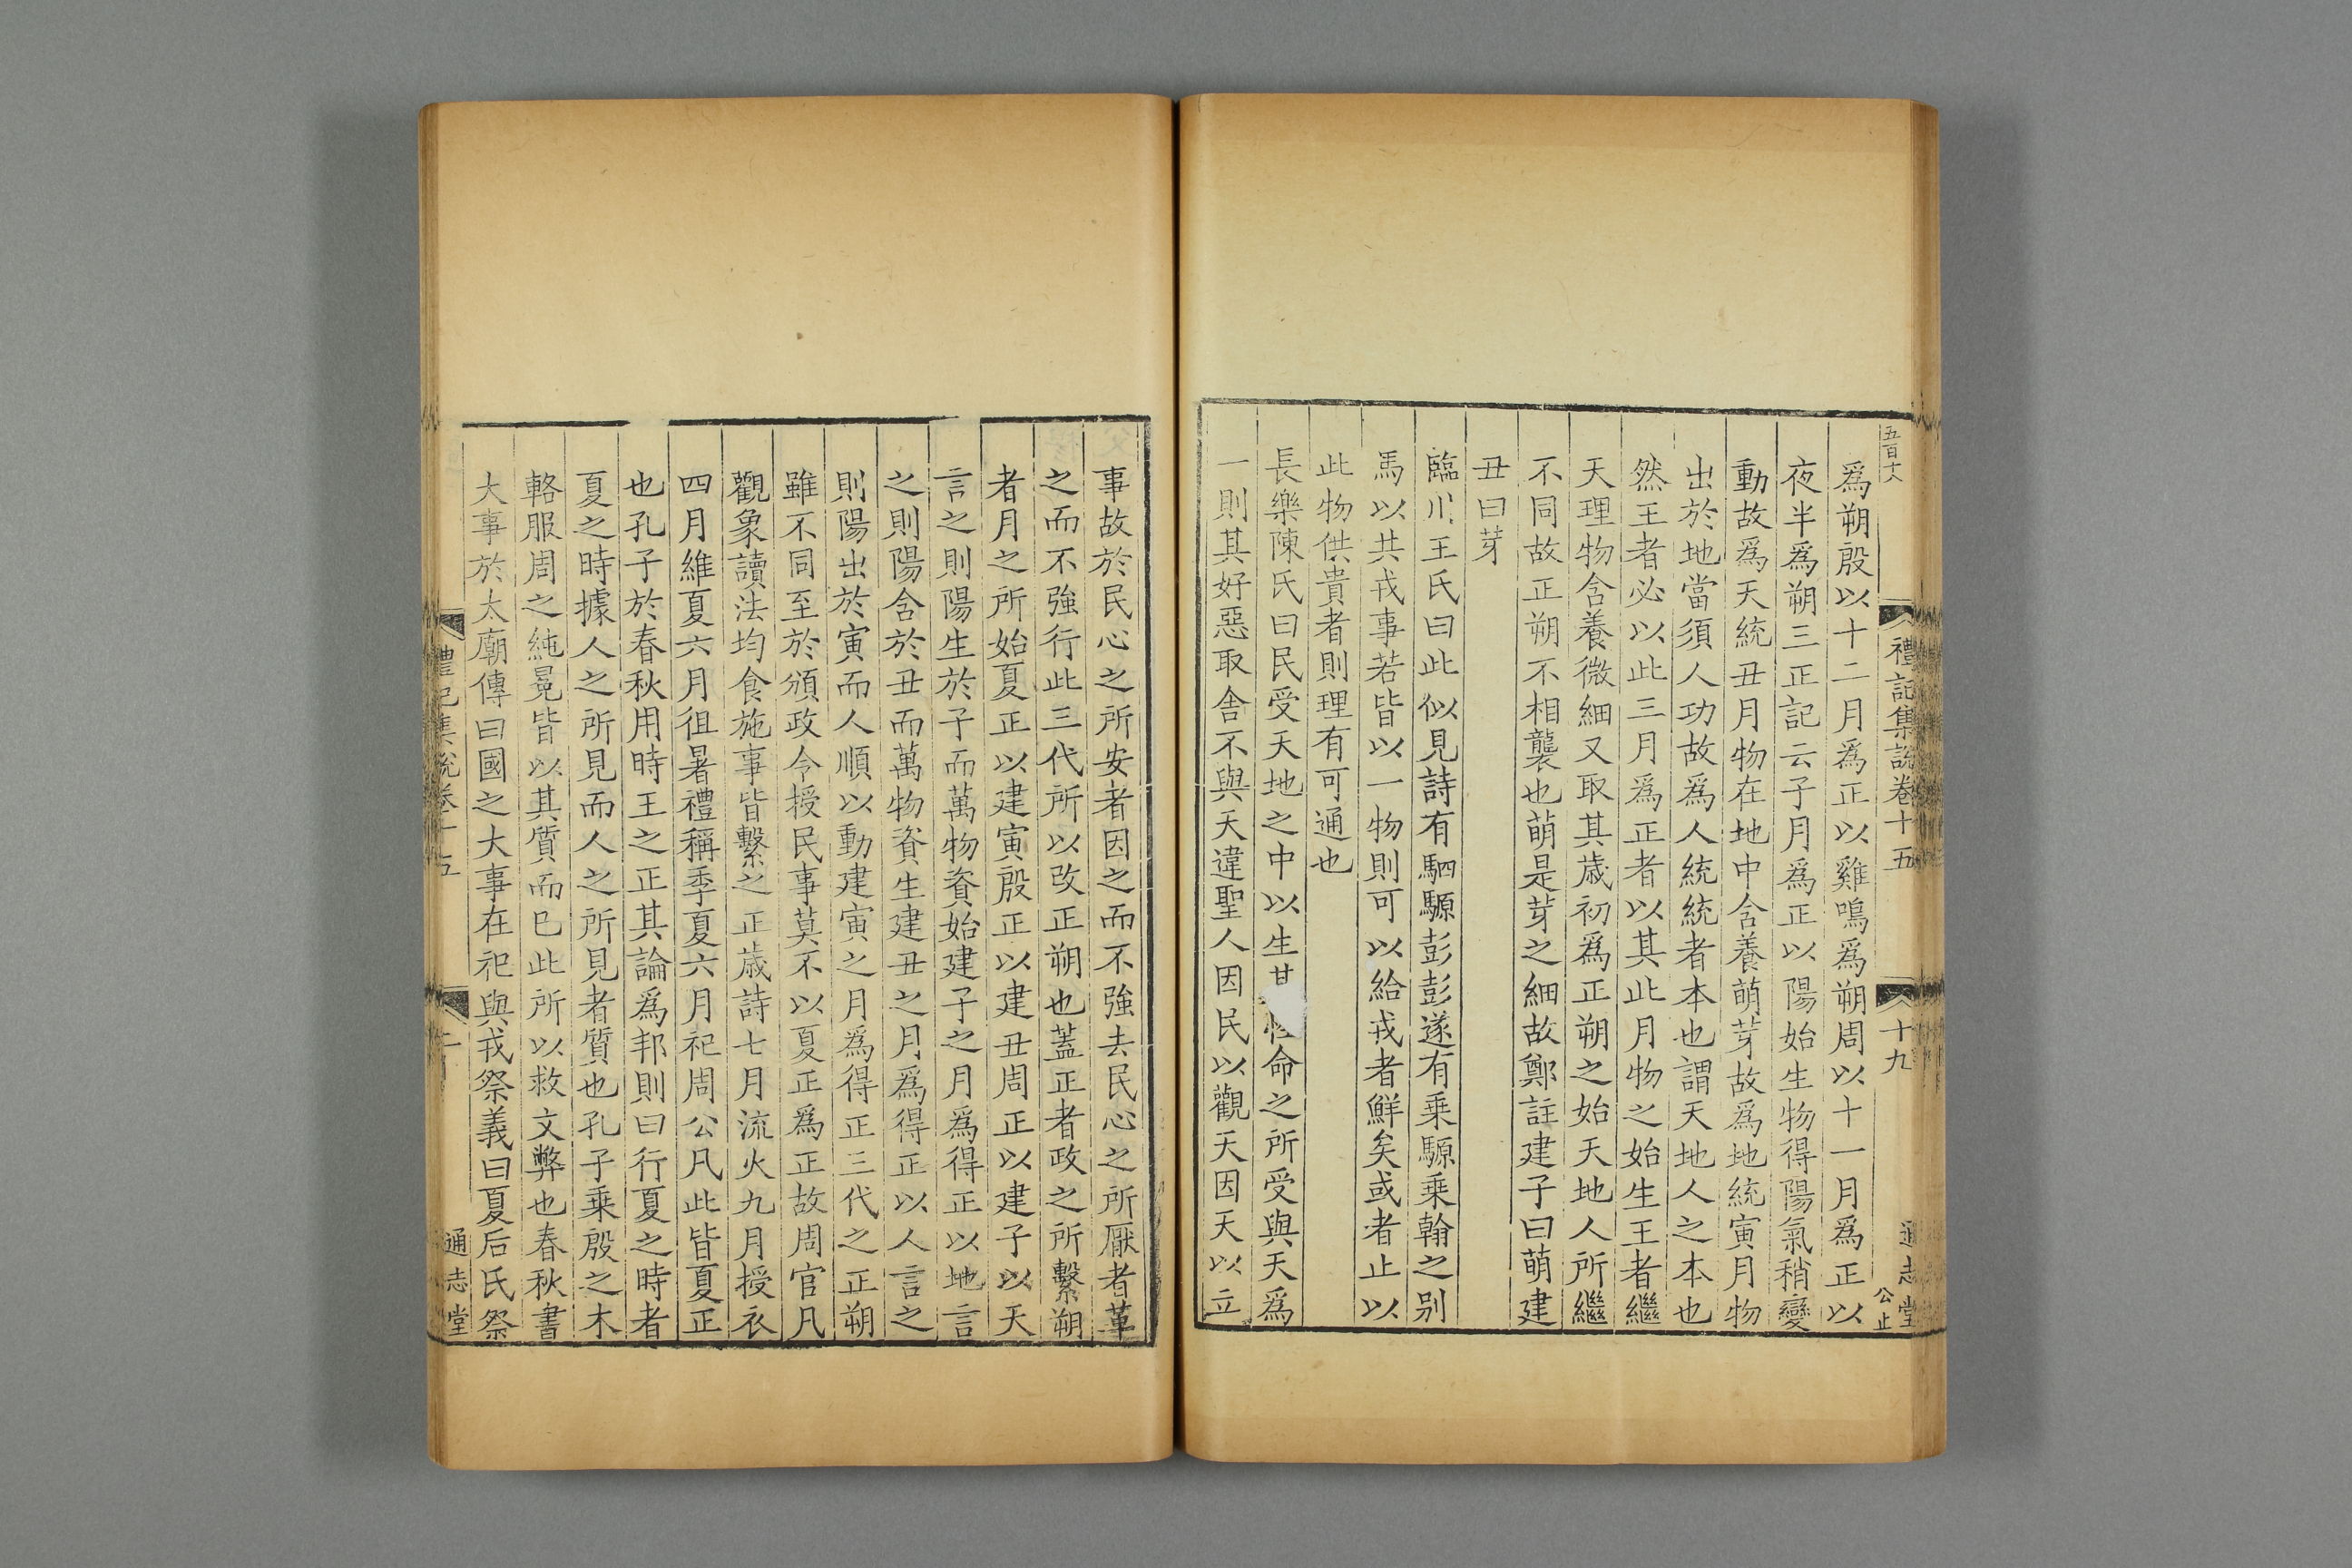 五百十八
禮記集說卷十五
十九
通志堂
公止
爲朔殷以十二月爲正以雞鳴爲朔周以十一月爲正以
夜半爲朔三正記云子月爲正以陽始生物得陽氣稍變
動故爲天統丑月物在地中含養萌芽故爲地統寅月物
出於地當須人功故爲人統統者本也謂天地人之本也
然王者必以此三月爲正者以其此月物之始生王者繼
天理物含養微細又取其歳初爲正朔之始天地人所繼
不同故正朔不相襲也萌是芽之細故鄭註建子曰萌建
丑曰芽
臨川王氏曰此似見詩有駟騵彭彭遂有乗騵乗翰之别
馬以共戎事若皆以一物則可以給戎者鮮矣或者止以
此物供貴者則理有可通也
長樂陳氏曰民受天地之中以生其性命之所受與天爲
一則其好惡取舎不與天違聖人因民以觀天因天以立
事故於民心之所安者因之而不強去民心之所厭者革
之而不強行此三代所以改正朔也蓋正者政之所繫朔
者月之所始夏正以建寅殷正以建丑周正以建子以天
言之則陽生於子而萬物資始建子之月爲得正以地言
之則陽含於丑而萬物資生建丑之月爲得正以人言之
則陽出於寅而人順以動建寅之月爲得正三代之正朔
雖不同至於頒政令授民事莫不以夏正爲正故周官凡
觀象讀法均食施事皆繫之正歳詩七月流火九月授衣
四月維夏六月徂暑禮稱季夏六月祀周公凡此皆夏正
也孔子於春秋用時王之正其論爲邦則曰行夏之時者
夏之時據人之所見而人之所見者質也孔子乗殷之木
輅服周之純冕皆以其質而已此所以救文弊也春秋書
大事於太廟傳曰國之大事在祀與戎祭義曰夏后氏祭
禮記集說卷十五
通志堂